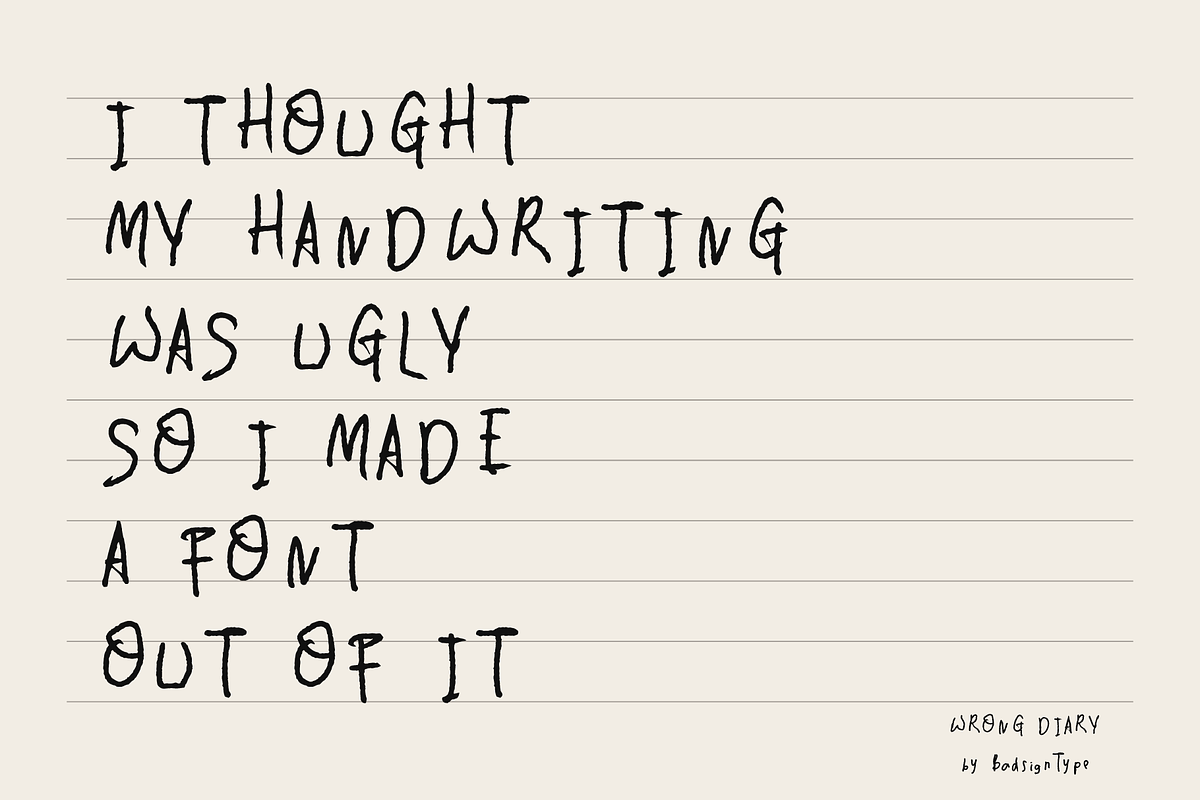 I THOUGHT
MY HANDWRITING
WAS UGLY
SO I MADE
A FONT
OUT OF IT
WRONG DIARY
by BadsignType